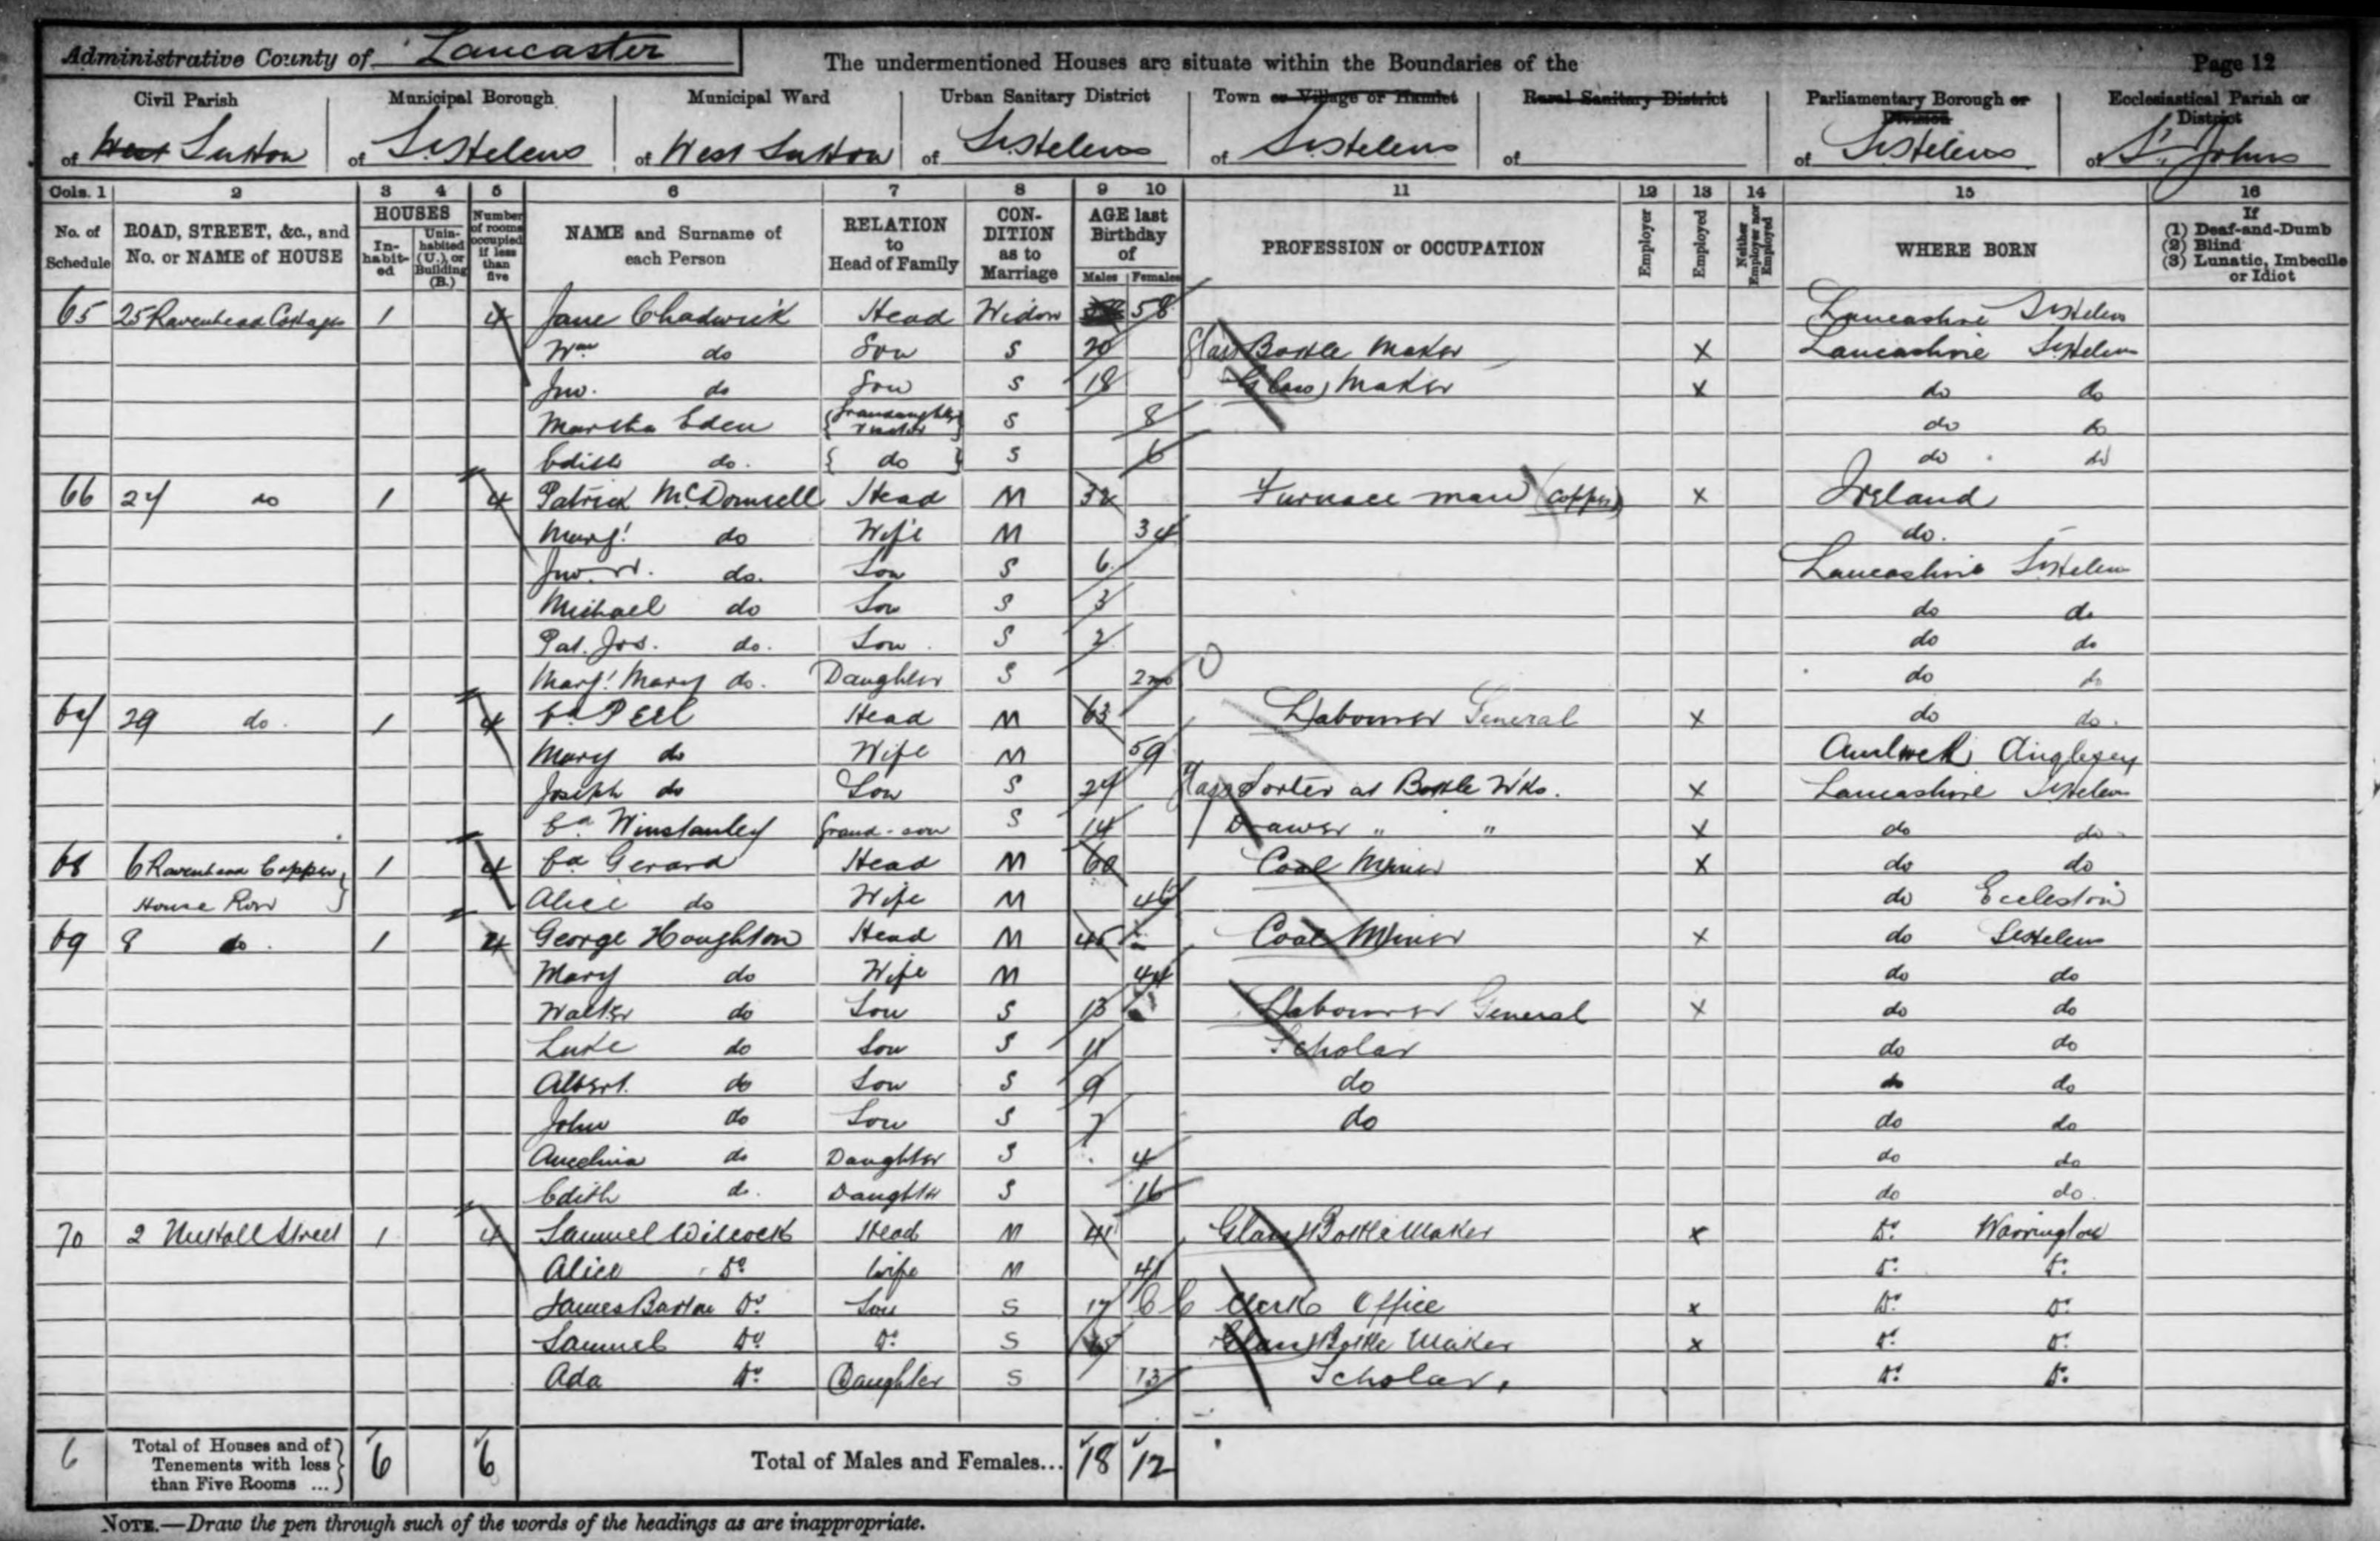 Administrative County of Lancaster The undermentioned Houses are situate within the Boundaries of the Page 12
Civil Parish Municipal Borough Municipal Ward Urban Sanitary District Town or Village or Hamlet Rural Sanitary District Parliamentary Borough or Division Ecclesiastical Parish or District
of West Sutton of St Helens of West Sutton of St Helens of St Helens of of St Helens of St. Johns
Cols. 1 2 3 4 5 6 7 8 9 10 11 12 13 14 15 16
No. of Schedule ROAD, STREET, &c., and No. or NAME of HOUSE HOUSES In-habit-ed Unin-habited (U.), or Building (B.) Number of rooms occupied if less than five NAME and Surname of each Person RELATION to Head of Family CON-DITION as to Marriage AGE last Birthday of Males Females PROFESSION or OCCUPATION Employer Employed Neither Employer nor Employed WHERE BORN If (1) Deaf-and-Dumb (2) Blind (3) Lunatic, Imbecile or Idiot
65 25 Ravenhead Cottages 1 4 Jane Chadwick Head Widow 58 Lancashire St Helens
Wm do Son S 20 Glass Bottle Maker X Lancashire St Helens
Jno. do Son S 18 Glass Maker X do do
Martha Eden {Grandaughter Visitor} S 8 do do
Edith do. { do } S 6 do do
66 27 do 1 4 Patrick McDonnell Head M 32 Furnace man (Copper) X Ireland
Margt do Wife M 34 do.
Jno. W. do. Son S 6 Lancashire St Helens
Michael do Son S 3 do do
Pat. Jos. do. Son S 2 do do
Margt Mary do. Daughter S 2mo do do
67 29 do. 1 4 Ed Peel Head M 63 Labourer General X do do.
Mary do Wife M 59 Amlwch Anglesey
Joseph do Son S 24 Glass Sorter at Bottle Wks. X Lancashire St Helens
Ed Winstanley Grand-son S 14 Drawer " " X do do
68 6 Ravenhead Copper House Row } 1 4 Ed Gerard Head M 60 Coal Miner X do do
Alice do Wife M 46 do Eccleston
69 8 do. 1 4 George Houghton Head M 45 Coal Miner X do St Helens
Mary do Wife M 44 do do
Walter do Son S 13 Labourer General X do do
Luke do Son S 11 Scholar do do
Albert do Son S 9 do do do
John do Son S 7 do do do
Angelina do Daughter S 4 do do
Edith do. Daughter S 16 do do.
70 2 Nuttall Street 1 4 Samuel Wilcock Head M 41 Glass Bottle Maker X Do Warrington
Alice Do Wife M 41 Do Do
James Barton Do Son S 17 Clerk Office X Do Do
Samuel Do Do S 15 Glass Bottle Maker X Do Do
Ada Do Daughter S 13 Scholar. Do Do
6 Total of Houses and of Tenements with less than Five Rooms ...} 6 6 Total of Males and Females... 18 12
NOTE.—Draw the pen through such of the words of the headings as are inappropriate.